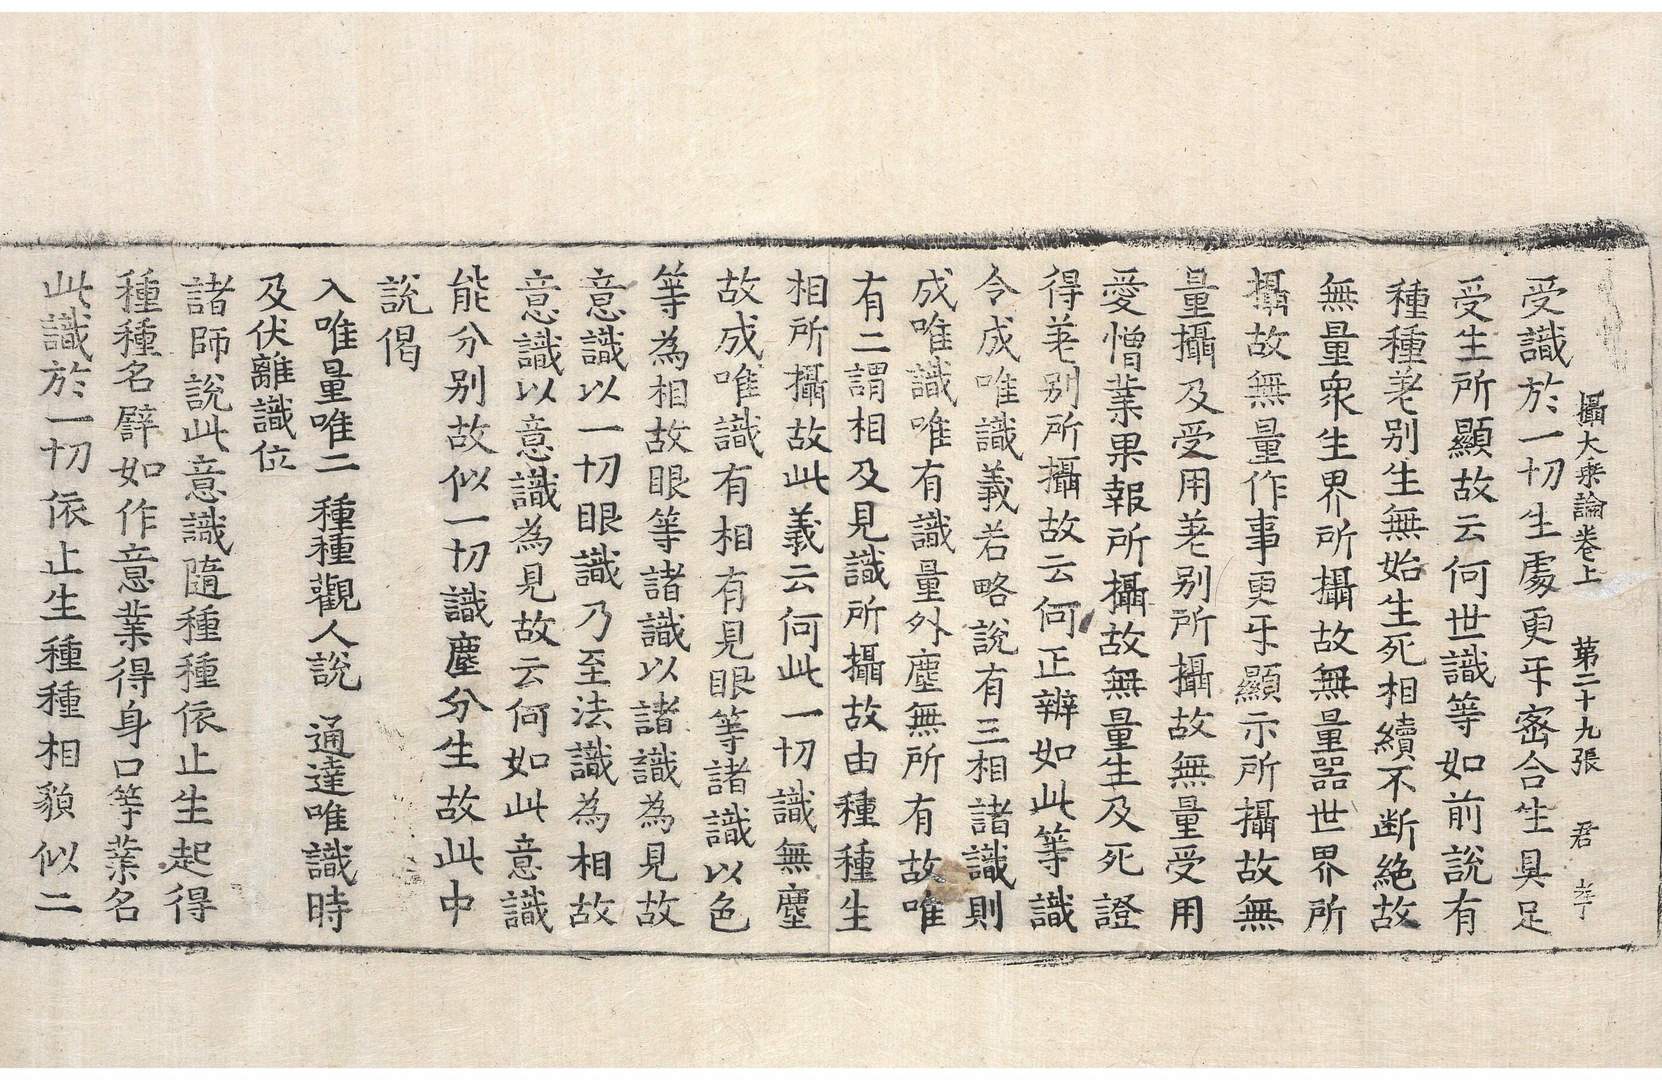 攝大乘論卷上　第二十九張　君
受識於一切生處更互密合生具足
受生所顯故云何世識等如前說有
種種差別生無始生死相續不斷絕故
無量衆生界所攝故無量器世界所
攝故無量作事更互顯示所攝故無
量攝及受用差別所攝故無量受用
愛憎業果報所攝故無量生及死證
得差別所攝故云何正辨如此等識
令成唯識義若略說有三相諸識則
成唯識唯有識量外塵無所有故唯
有二謂相及見識所攝故由種種生
相所攝故此義云何此一切識無塵
故成唯識有相有見眼等諸識以色
等為相故眼等諸識以諸識為見故
意識以一切眼識乃至法識為相故
意識以意識為見故云何如此意識
能分別故似一切識塵分生故此中
說偈
入唯量唯二　種種觀人說　通達唯識時
及伏離識位
諸師說此意識隨種種依止生起得
種種名譬如作意業得身口等業名
此識於一切依止生種種相貌似二